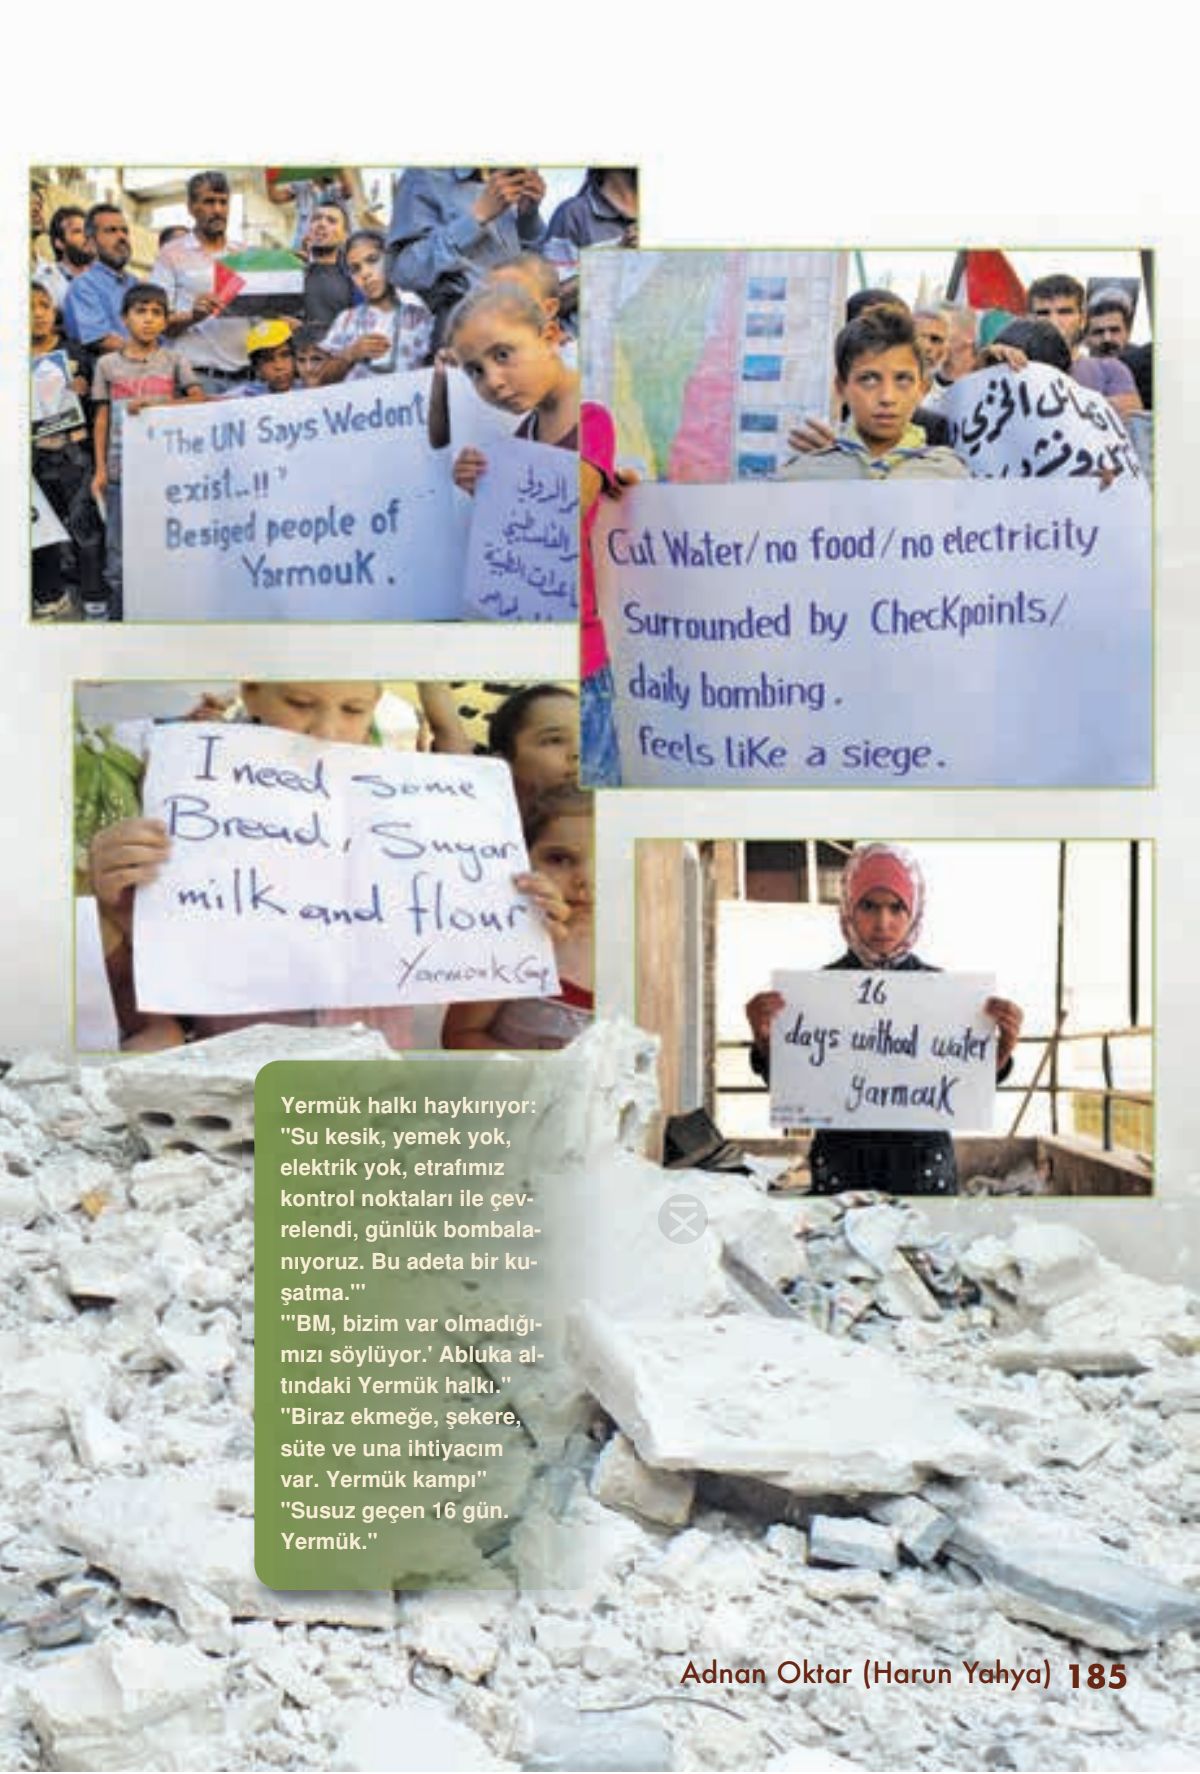 "The UN Says Wedon't
exist..!!"
Besiged people of
Yarmouk.
Cut Water/no food/no electricity
Surrounded by Checkpoints/
daily bombing.
feels like a siege.
I need some
Bread, Sugar
milk and flour
Yarmouk Camp
16
days without water
yarmouk
Yermük halkı haykırıyor:
"Su kesik, yemek yok,
elektrik yok, etrafımız
kontrol noktaları ile çev-
relendi, günlük bombala-
nıyoruz. Bu adeta bir ku-
şatma."'
"'BM, bizim var olmadığı-
mızı söylüyor.' Abluka al-
tındaki Yermük halkı."
"Biraz ekmeğe, şekere,
süte ve una ihtiyacım
var. Yermük kampı"
"Susuz geçen 16 gün.
Yermük."
Adnan Oktar (Harun Yahya) 185